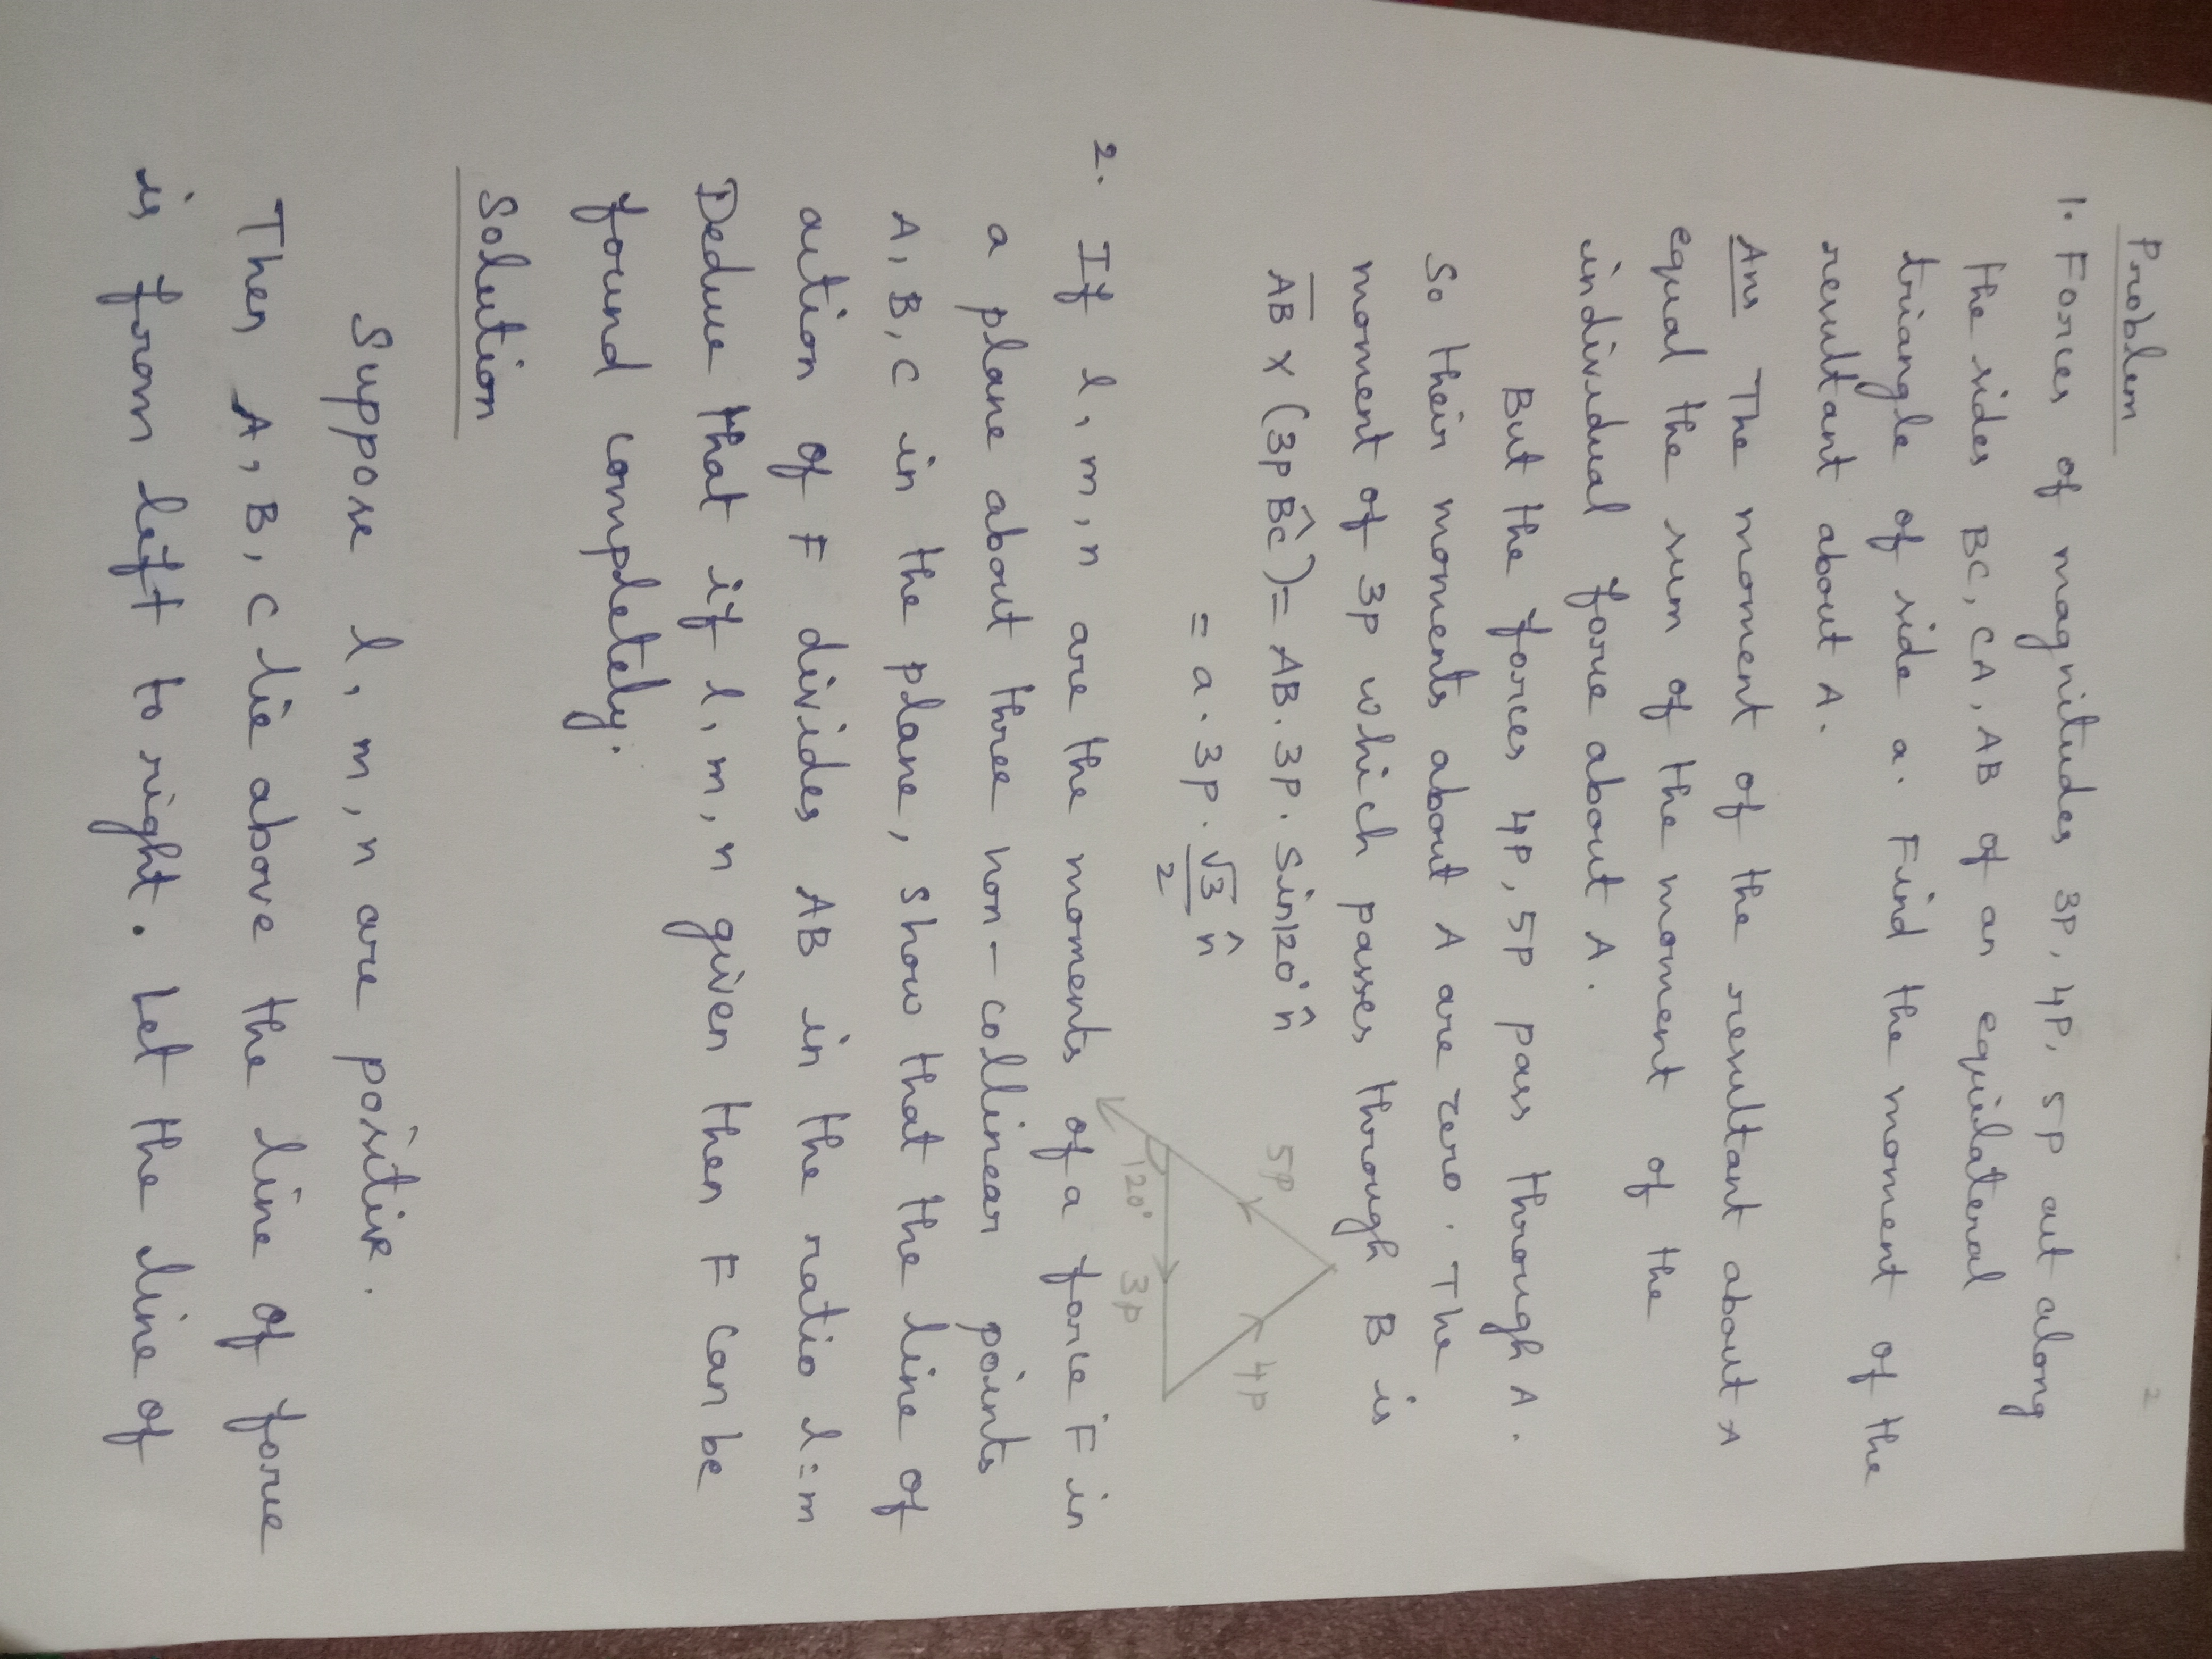 2
Problem
1. Forces of magnitudes 3P, 4P, 5P act along
the sides BC, CA, AB of an equilateral
triangle of side a. Find the moment of the
resultant about A.
Ans The moment of the resultant about A
equal the sum of the moment of the
individual force about A.
But the forces 4P, 5P pass through A.
So their moments about A are zero. The
moment of 3P which passes through B is
\overline{AB} × (3P \hat{BC}) = AB. 3P. Sin120° n̂
= a. 3P. √3/2 n̂
5P
4P
120°
3P
2. If l, m, n are the moments of a force F in
a plane about three non-collinear points
A, B, C in the plane, show that the line of
action of F divides AB in the ratio l:m
Deduce that if l, m, n given then F can be
found completely.
Solution
Suppose l, m, n are positive.
Then A, B, C lie above the line of force
is from left to right. Let the line of